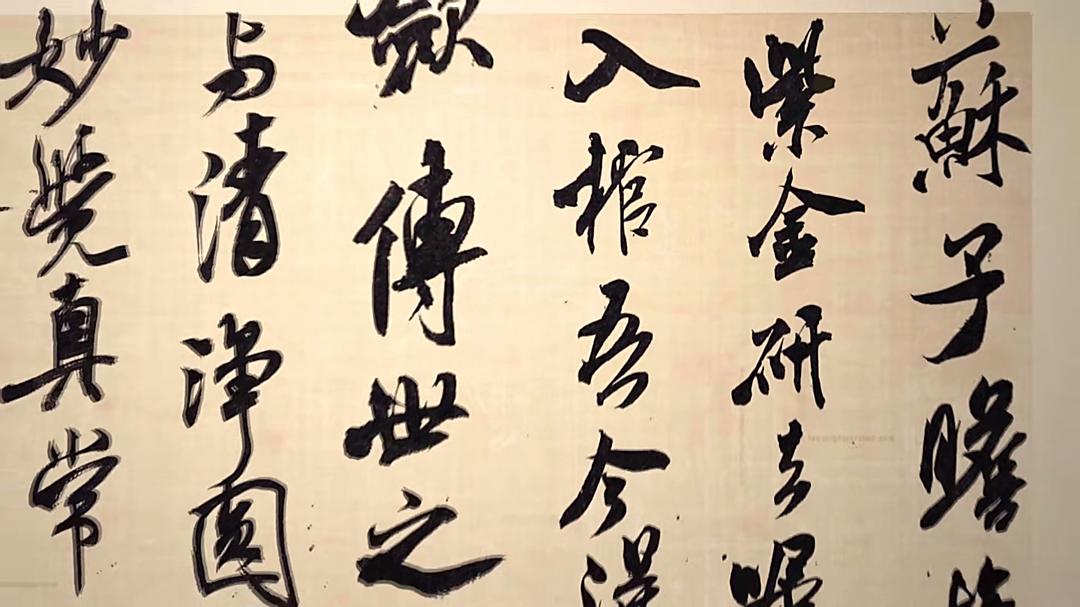 蘇子瞻
紫金研去嘱
入棺吾今得
歛傳世之
与清淨圓
妙覺真常